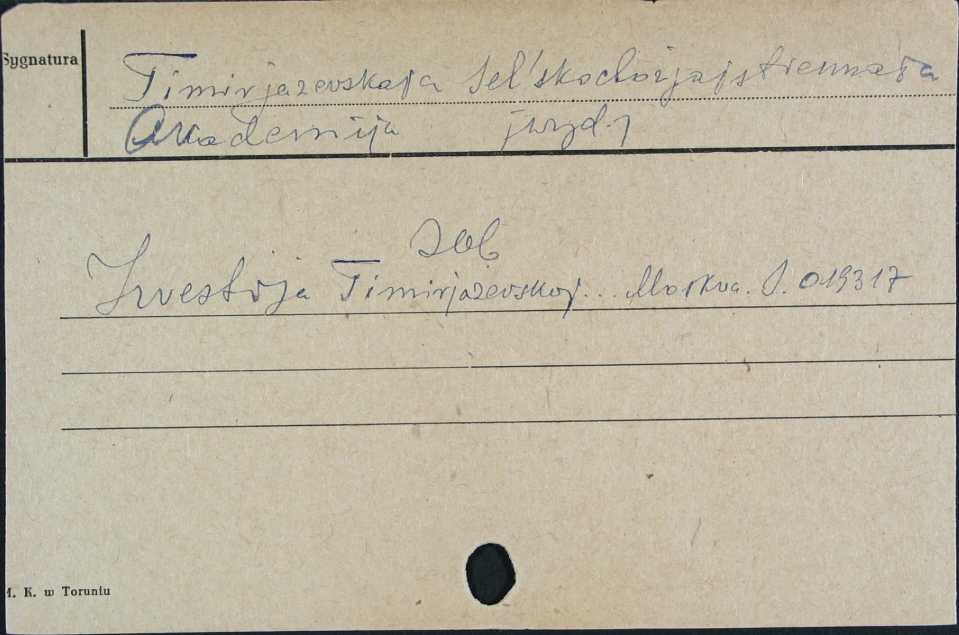 Sygnatura
Timirjazevskaja Sel'skochozjajstvennaja
Akademija [wyd.]
zob
Izvestija Timirjazevskoj... Moskva. S. 019317
K. w Toruniu